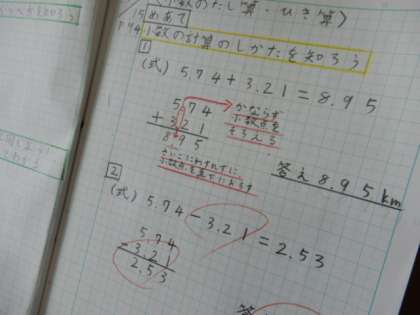 数のたし算・ひき算〉
15
めあて
P94
数の計算のしかたを知ろう
1
(式) 5.74+3.21=8.95
5.74
+3.21
8.95
かならず
小数点を
そろえる
さいごにわすれずに
小数点を
答え 8.95km
2
(式) 5.74-3.21=2.53
5.74
-3.21
2.53
答